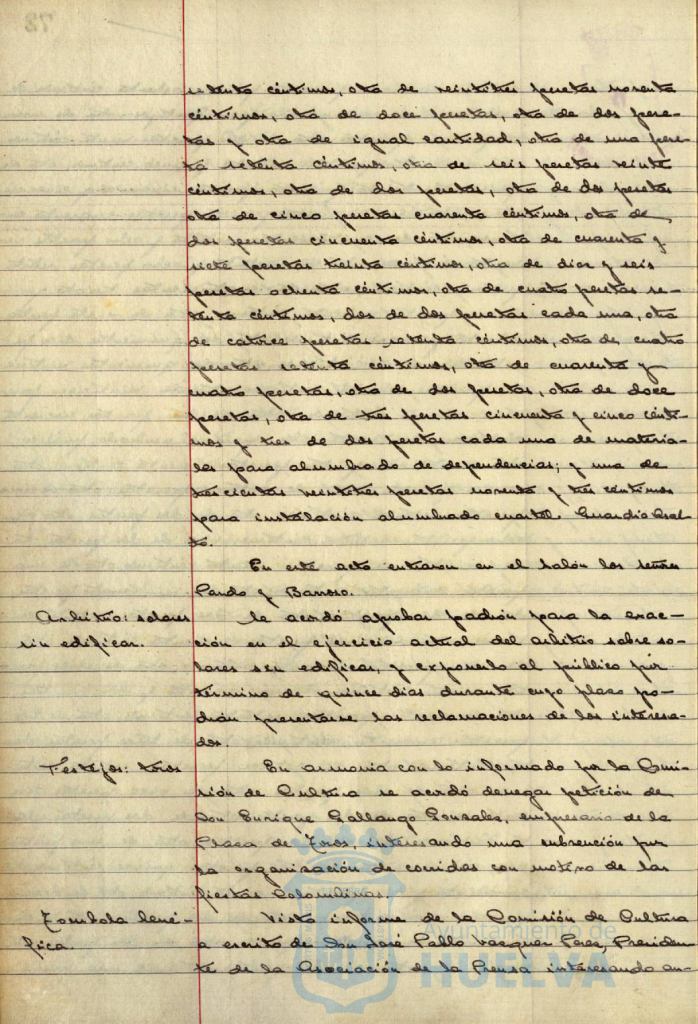 setenta céntimos, otra de veintitres pesetas noventa
céntimos, otra de doce pesetas, otra de dos pese-
tas y otra de igual cantidad, otra de una pese-
ta setenta céntimos, otra de seis pesetas veinte
céntimos, otra de dos pesetas, otra de dos pesetas
otra de cinco pesetas cuarenta céntimos, otra de
dos pesetas cincuenta céntimos, otra de cuarenta y
siete pesetas treinta céntimos, otra de diez y seis
pesetas ochenta céntimos, otra de cuatro pesetas se-
tenta céntimos, dos de dos pesetas cada una, otra
de catorce pesetas setenta céntimos, otra de cuatro
pesetas setenta céntimos, otra de cuarenta y
cuatro pesetas, otra de dos pesetas, otra de doce
pesetas, otra de tres pesetas cincuenta y cinco cénti-
mos y tres de dos pesetas cada una de materia-
les para alumbrado de dependencias; y una de
trescientas veintitres pesetas noventa y tres céntimos
para instalación alumbrado cuartel Guardia Asal-
to.
En este acto entraron en el salón los señores
Pardo y Barroso.
Arbitrio: solares
sin edificar.
Se acordó aprobar padrón para la exac-
ción en el ejercicio actual del arbitrio sobre so-
lares sin edificar, y exponerlo al público por
término de quince dias durante cuyo plazo po-
drán presentarse las reclamaciones de los interesa-
dos.
Festejos: toros
En armonia con lo informado por la Comi-
sión de Cultura se acordó denegar petición de
Don Enrique Gallango Gonzalez, empresario de la
Plaza de Toros, interesando una subvención por
la organización de corridas con motivo de las
fiestas Colombinas.
Tombola bené-
fica.
Visto informe de la Comisión de Cultura
a escrito de Don José Pablo Vazquez Perez, Presiden-
te de la Asociación de la Prensa interesando au-
Ayuntamiento de
HUELVA
78